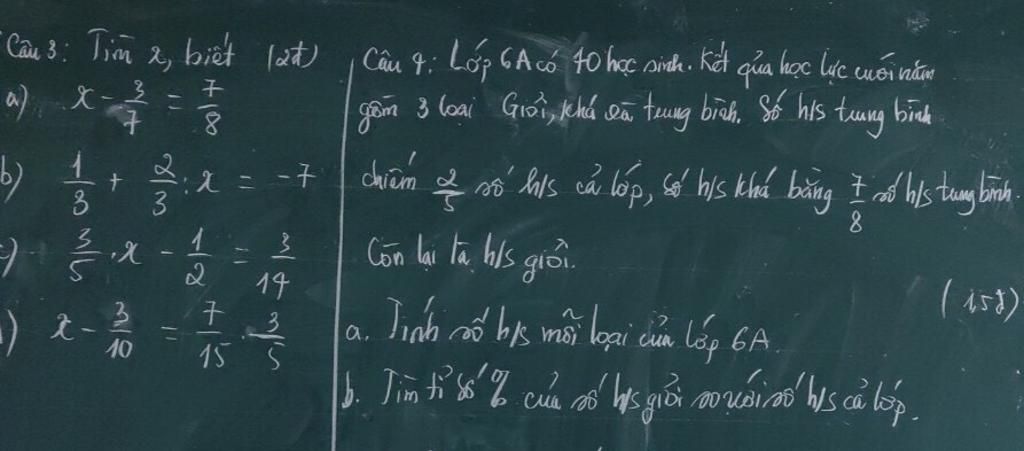 Câu 3: Tìm x, biết (2đ)
a) x - 3/7 = 7/8
b) 1/3 + 2/3 : x = -7
c) 3/5 . x - 1/2 = 3/14
) x - 3/10 = 7/15 . 3/5
Câu 4: Lớp 6A có 40 học sinh. Kết quả học lực cuối năm
gồm 3 loại Giỏi, khá và trung bình. Số h/s trung bình
chiếm 2/5 số h/s cả lớp, số h/s khá bằng 7/8 số h/s trung bình.
Còn lại là h/s giỏi.
(1,5đ)
a. Tính số h/s mỗi loại của lớp 6A.
b. Tìm tỉ số % của số h/s giỏi so với số h/s cả lớp.